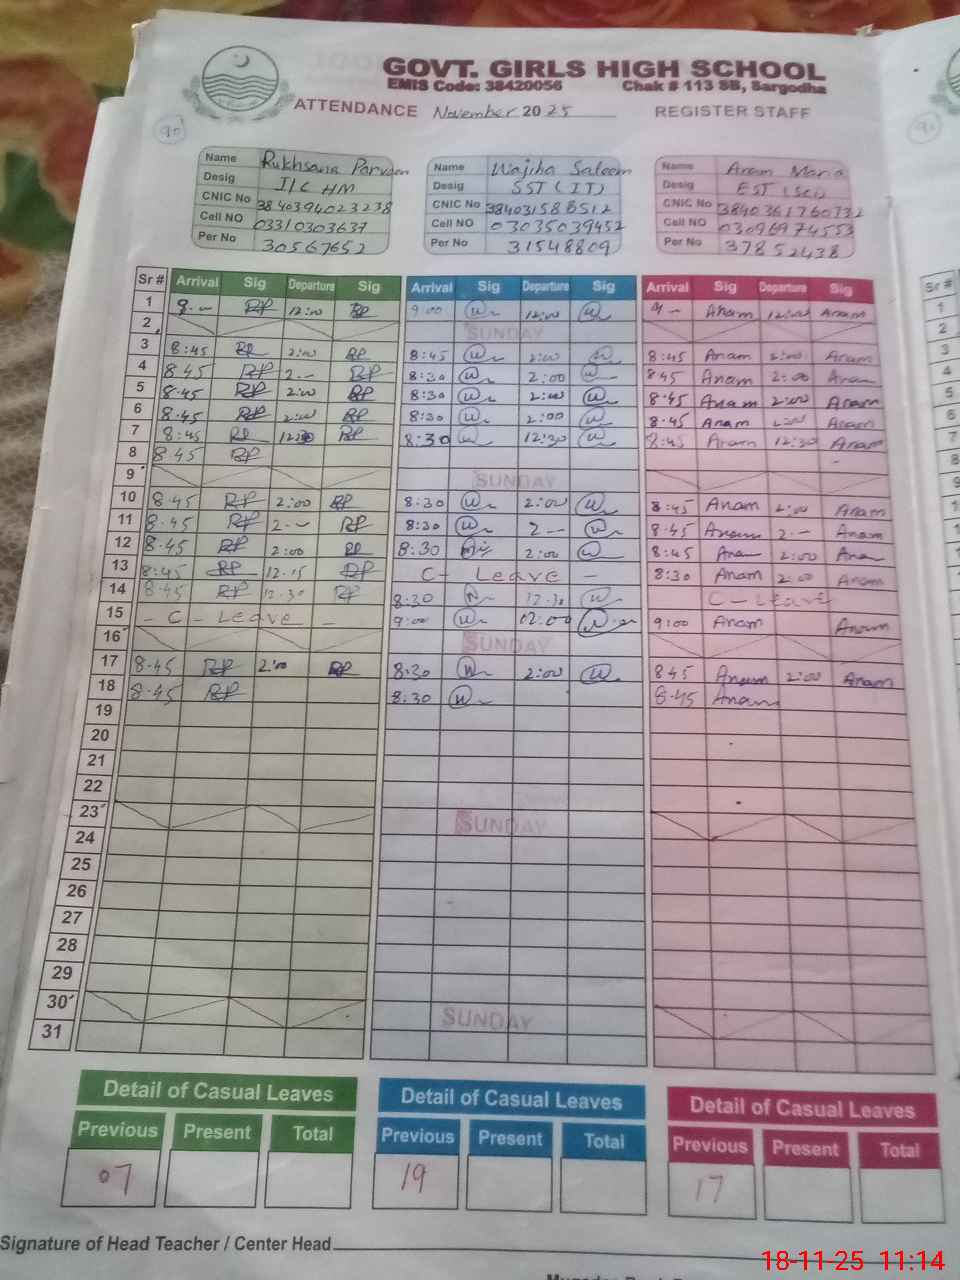 GOVT. GIRLS HIGH SCHOOL
EMIS Code: 38420056 Chak # 113 SB, Sargodha
ATTENDANCE November 2025 REGISTER STAFF
90
Name Rukhsana Parveen Name Wajiha Saleem Name Anam Maria
Desig I/C HM Desig SST (IT) Desig EST (Sci)
CNIC No 3840394023238 CNIC No CNIC No
Cell NO 03310303637 Cell NO 03035039452 Cell NO 03096974553
Per No 30567652 Per No 31548809 Per No 37852438
Sr # Arrival Sig Departure Sig Arrival Sig Departure Sig Arrival Sig Departure Sig
1 9.– RP 12:00 RP 9:00 W 12:00 W 9 – Anam 12:00 Anam
2 SUNDAY
3 8:45 RP 2:00 RP 8:45 W 2:00 W 8:45 Anam 2:00 Anam
4 8.45 RP 2 – RP 8:30 W 2:00 W 8.45 Anam 2:00 Anam
5 8.45 RP 2:00 RP 8:30 W 2:00 W 8.45 Anam 2:00 Anam
6 8.45 RP 2:00 RP 8:30 W 2:00 W 8.45 Anam 2:00 Anam
7 8:45 RP 12:30 RP 8:30 W 12:30 W 8:45 Anam 12:30 Anam
8 8.45 RP
9 SUNDAY
10 8.45 RP 2:00 RP 8:30 W 2:00 W 8:45 Anam 2:00 Anam
11 8.45 RP 2 -- RP 8:30 W 2 -- W 8.45 Anam 2 – Anam
12 8.45 RP 2:00 RP 8:30 2:00 W 8:45 Anam 2:00 Anam
13 8:45 RP 12.15 RP C- Leave – 8:30 Anam 2:00 Anam
14 8.45 RP 12.30 RP 8:30 W 12.30 W C-Leave
15 – C- Leave – 9:00 W 12:00 W 9:00 Anam Anam
16 SUNDAY
17 8.45 RP 2:00 RP 8:30 W 2:00 W 8.45 Anam 2:00 Anam
18 8.45 RP 8:30 W 8.45 Anam
19
20
21
22
23 SUNDAY
24
25
26
27
28
29
30 SUNDAY
31
Detail of Casual Leaves Detail of Casual Leaves Detail of Casual Leaves
Previous Present Total Previous Present Total Previous Present Total
07 19 17
Signature of Head Teacher / Center Head
18-11-25 11:14
Sr #
1
2
3
4
5
6
7
8